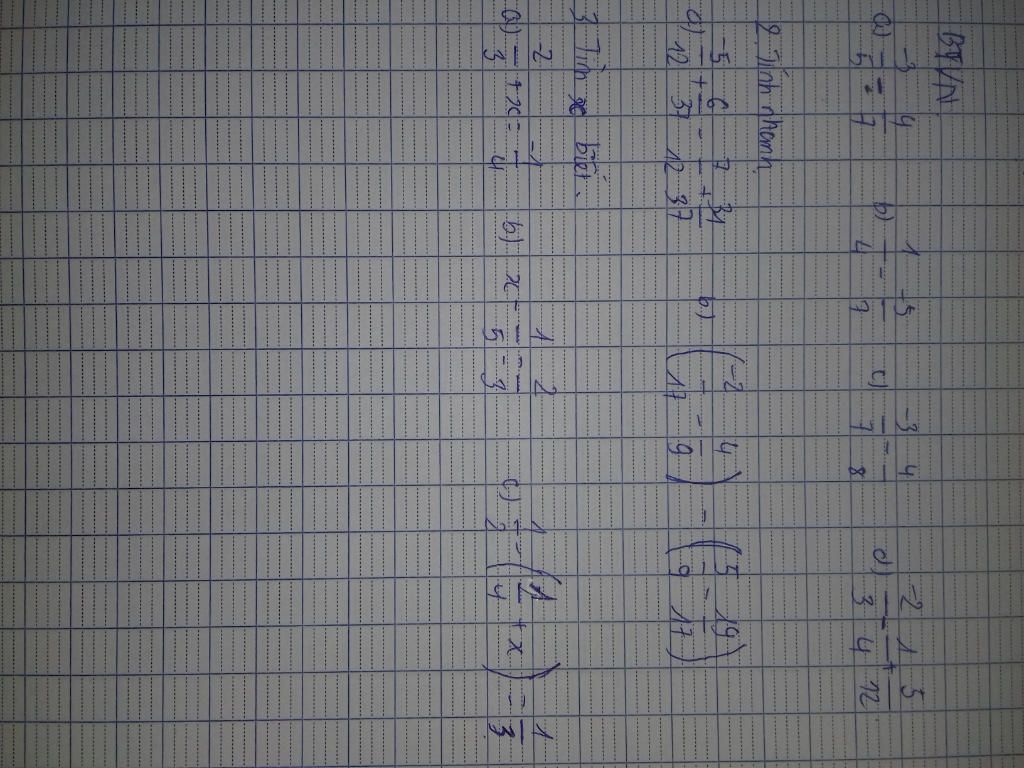 BT/1
a) -3/5 - 4/7 b) 1/4 - -5/7 c) -3/7 - 4/8 d) -2/3 - 1/4 + 5/12
2. Tính nhanh
a) -5/12 + 6/37 - 7/12 + 31/37 b) (-2/17 - 4/9) - (5/9 - 19/17)
3. Tìm x biết.
a) -2/3 + x = -1/4 b) x - 1/5 = 2/3 c) 1/2 - (1/4 + x) = 1/3